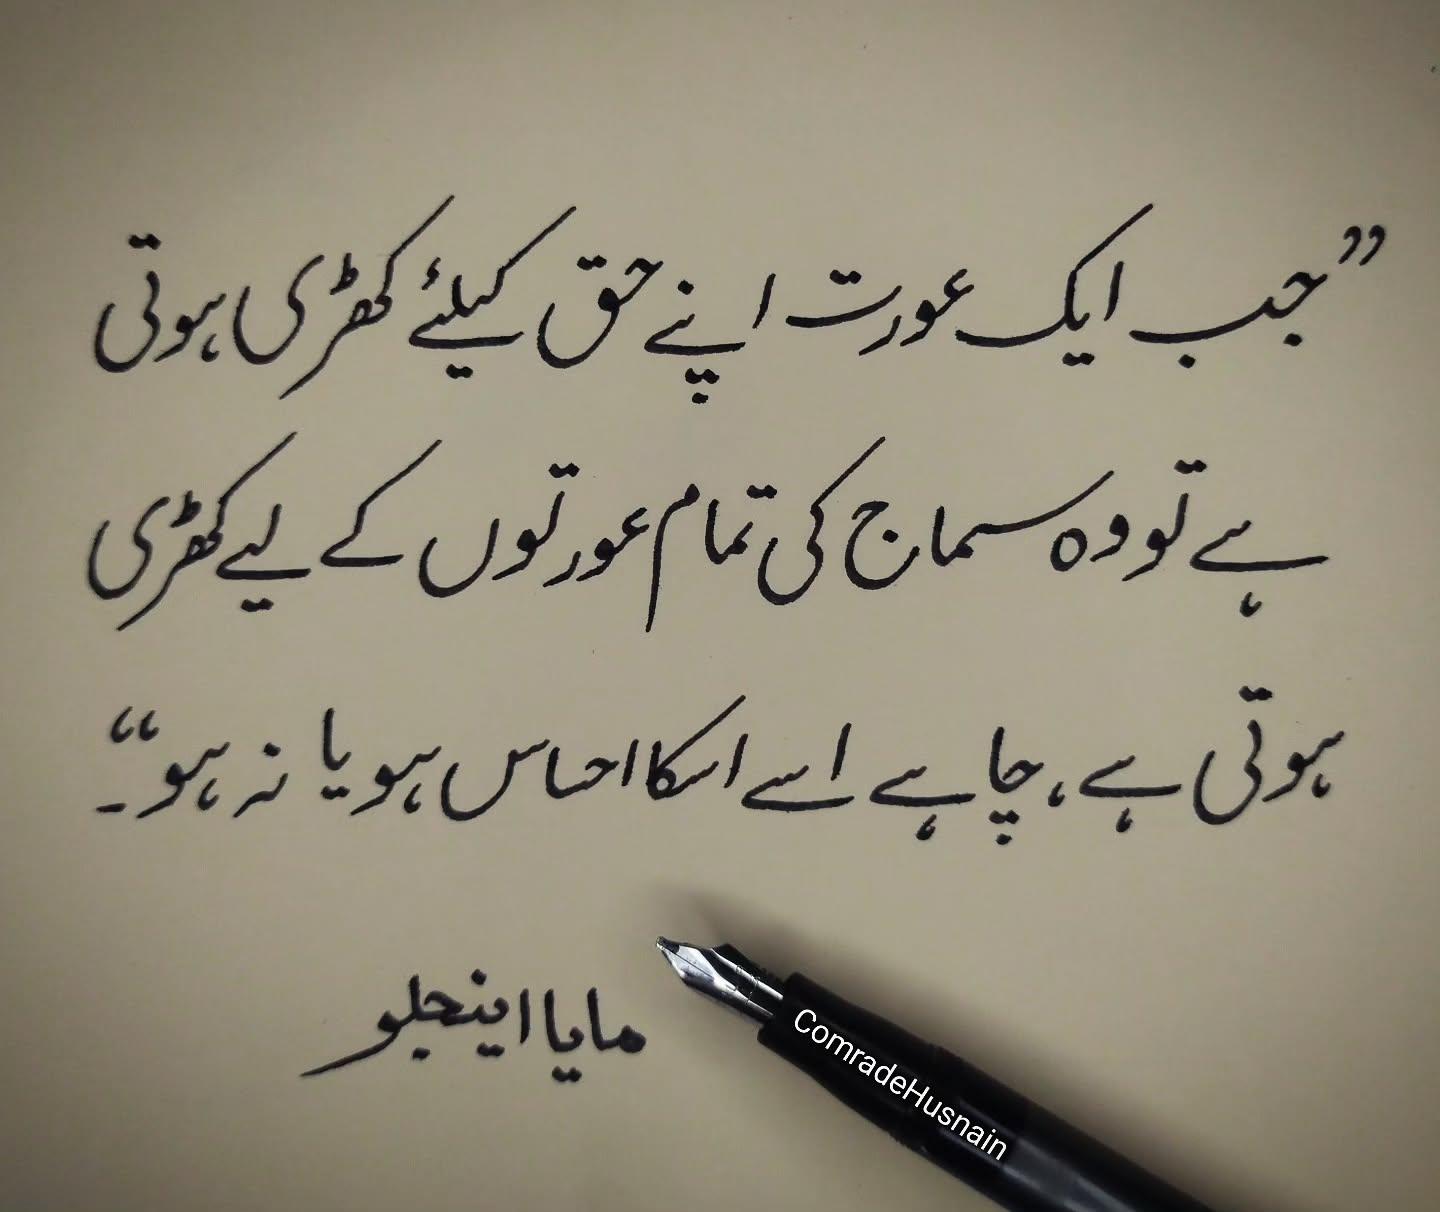 ”جب ایک عورت اپنے حق کیلئے کھڑی ہوتی
ہے تو وہ سماج کی تمام عورتوں کے لیے کھڑی
ہوتی ہے، چاہے اسے اسکا احساس ہو یا نہ ہو۔“
مایا اینجلو
ComradeHusnain